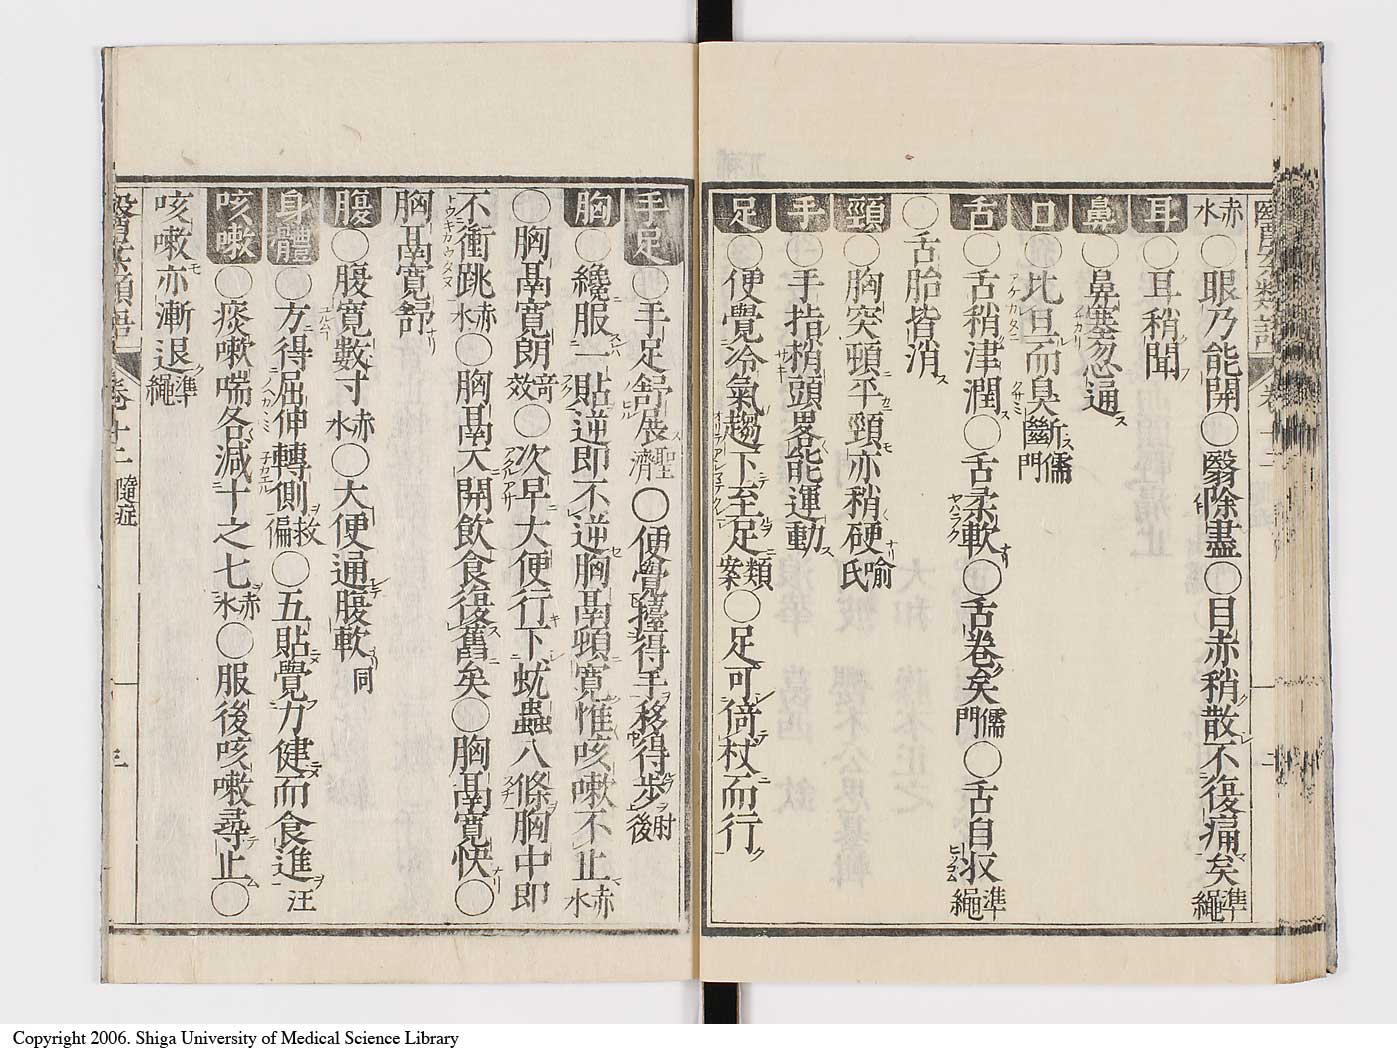 赤水○眼乃能開○翳除盡○目赤稍散不復痛矣準繩
耳○耳稍聞
鼻○鼻塞忽通
口○比旦而臭斷儒門
舌○舌稍津潤○舌柔軟○舌卷矣儒門○舌自収準繩
○舌胎皆消
頸○胸突頓平頸亦稍硬喻氏
手○手指梢頭畧能運動
足○便覺冷氣趨下至足類案○足可倚杖而行
手足○手足舒展聖濟○便覺擡得手移得步肘後
胸○纔服一貼逆即不逆胸鬲頓寛惟咳嗽不止赤水
○胸鬲寛朗竒效○次早大便行下蚘蟲八條胸中即
不衝跳赤水○胸鬲天開飲食復舊矣○胸鬲寛快○
胸鬲寛舒
腹○腹寛數寸赤水○大便通腹軟同
身體○方得屈伸轉側救偏○五貼覺力健而食進汪
咳嗽○痰嗽喘各減十之七赤水○服後咳嗽尋止○
咳嗽亦漸退準繩
卷十二 隨証
Copyright 2006. Shiga University of Medical Science Library